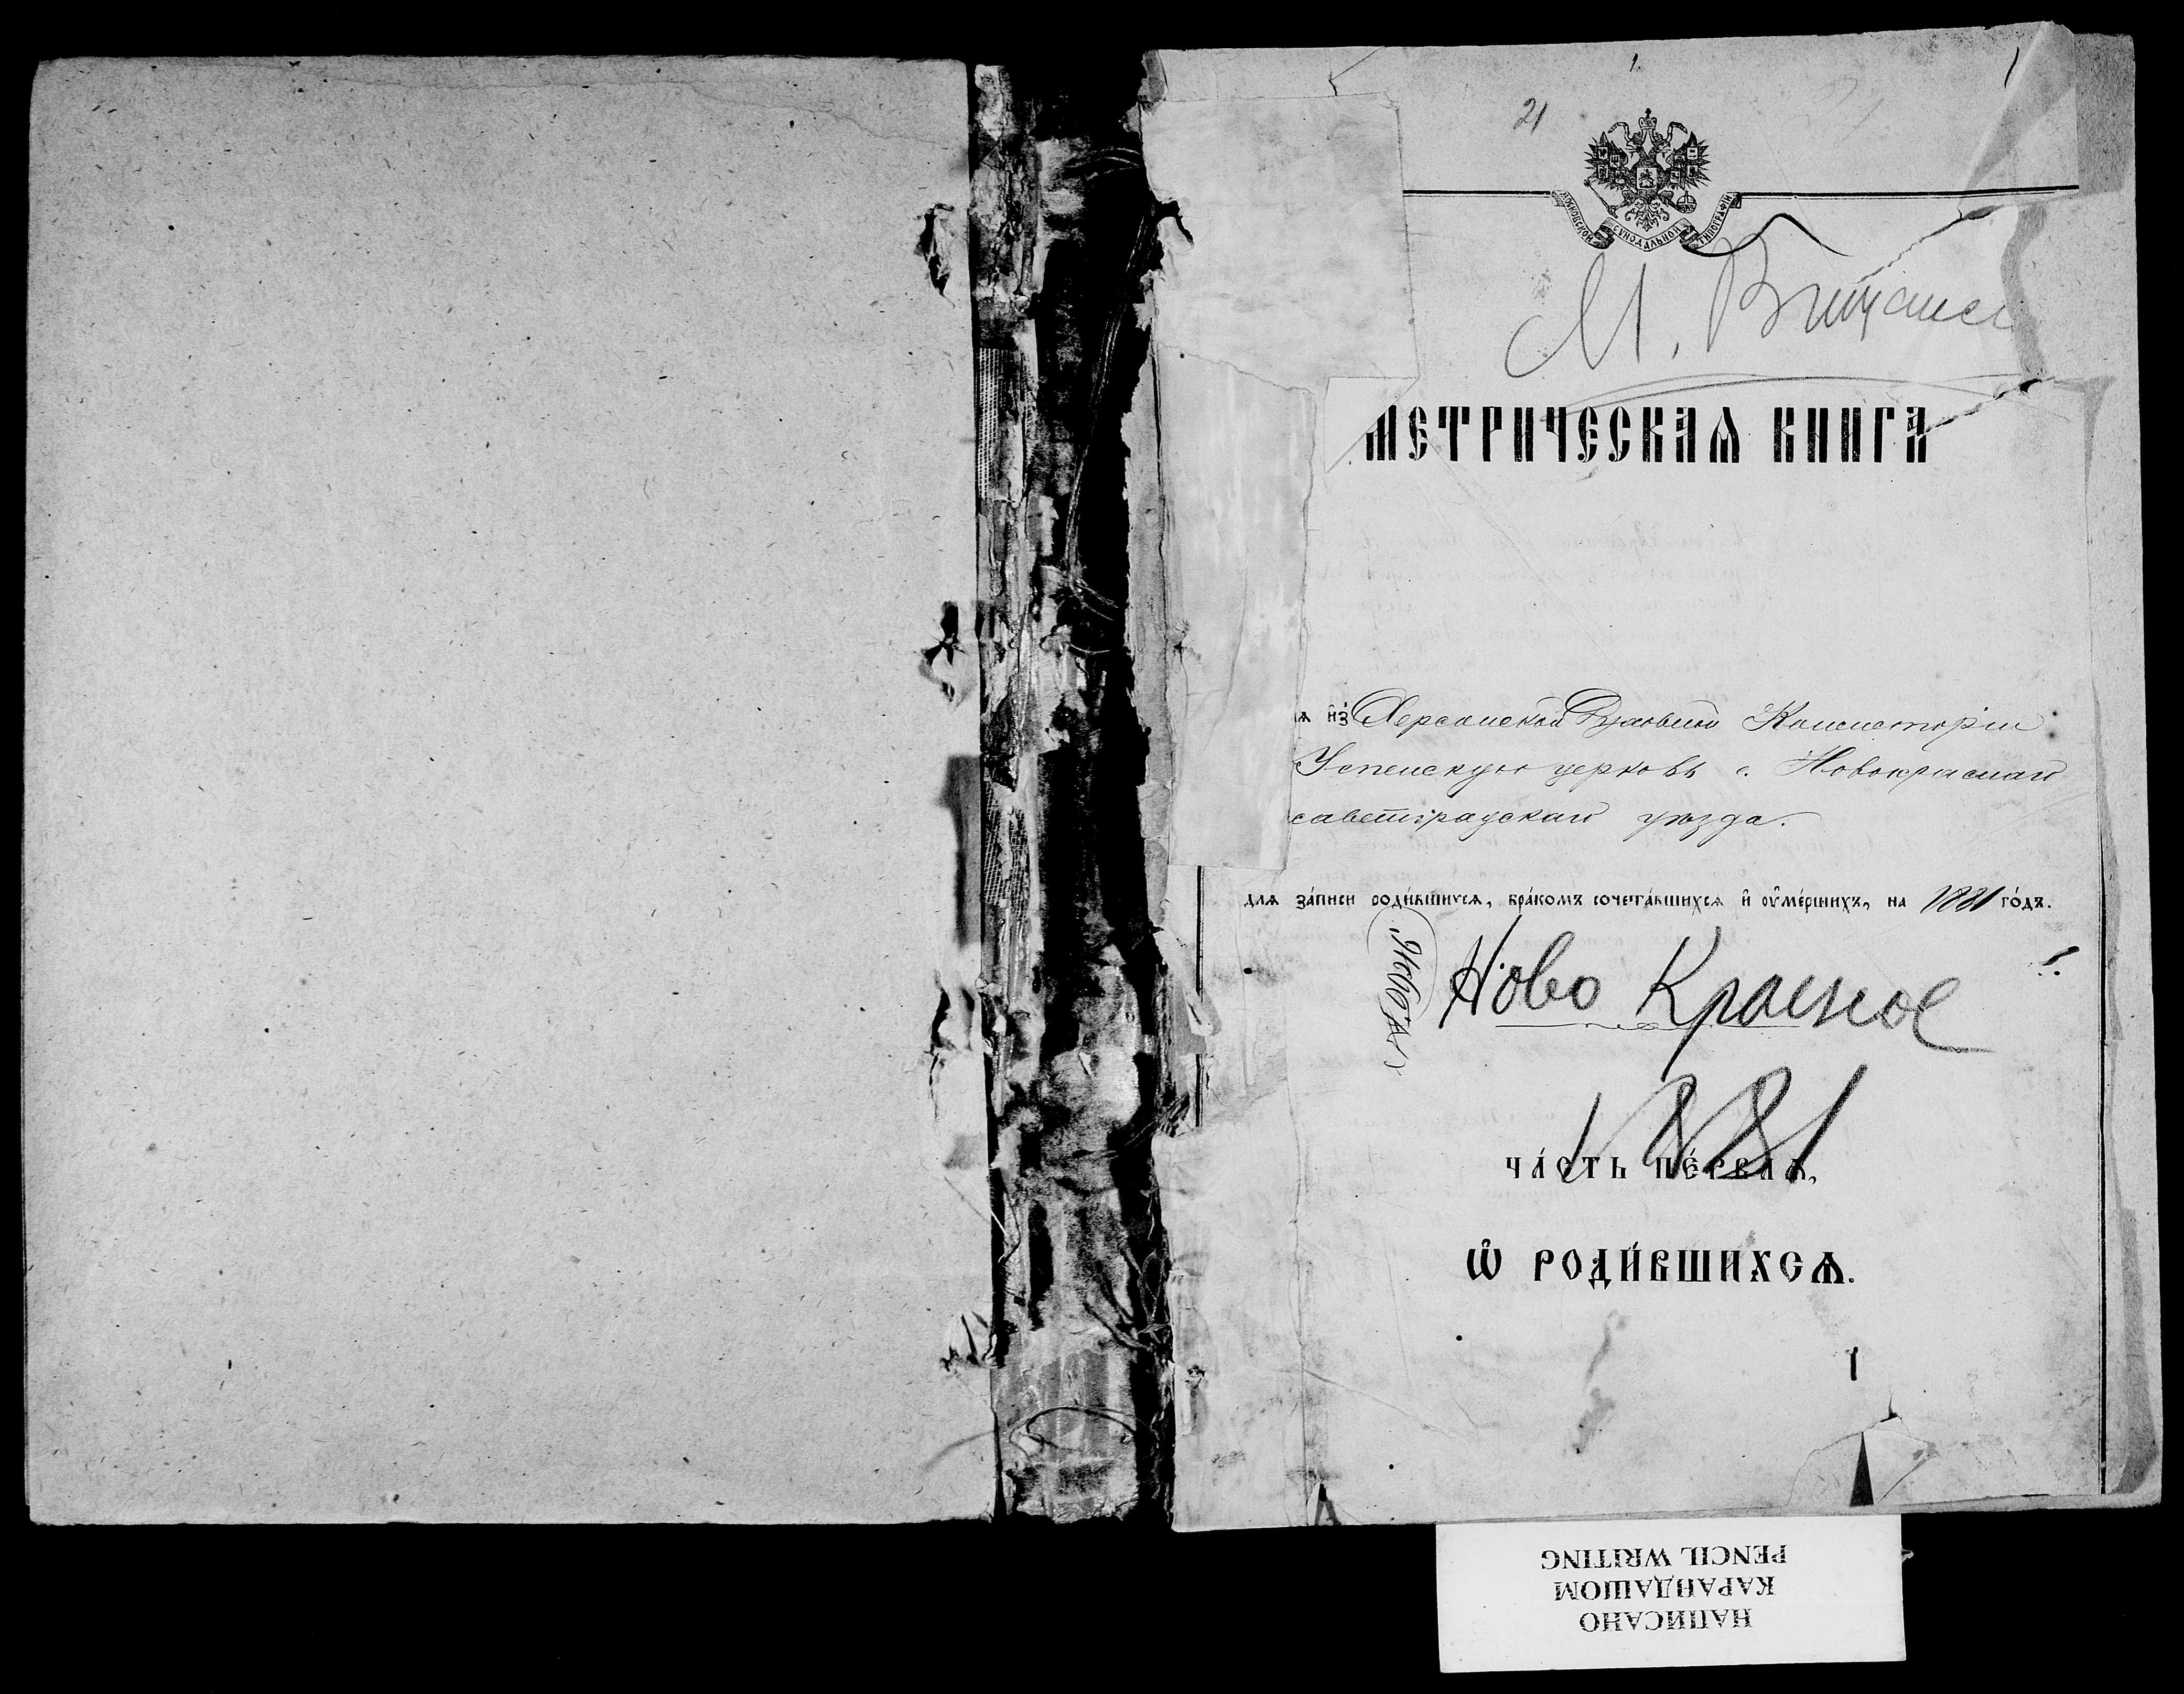 1.
21
МОСКОВСКОЙ СѴНОДАЛЬНОЙ ТИПОГРАФІИ
МЕТРИЧЕСКАѦ КНИГА
ѧ и҆з̾ Херсонской Духовной Консисторіи
Успенскую церковь с. Новокраснаго
саветградскаго уѣзда.
для за́писи роди́вшихсѧ, бра́комъ сочета́вшихсѧ и҆ ᲂу҆ме́ршихъ, на 1881 го́дъ.
Ново Красное
1881
ЧА́СТЬ ПЕ́РВАѦ,
Ѡ҆ РОДИ́ВШИХСѦ.
НАПИСАНО
КАРАНДАШОМ
PENCIL WRITING